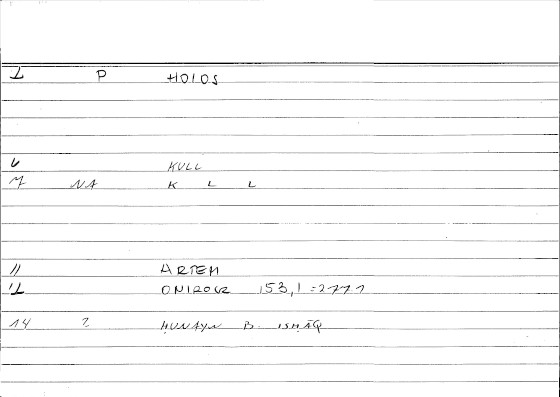 1 P HOLOS
6 KULL
7 NA K L L
11 ARTEM
12 ONIROCR 153,1 = 277 1
14 2 ḤUNAYN B. ISḤĀQ